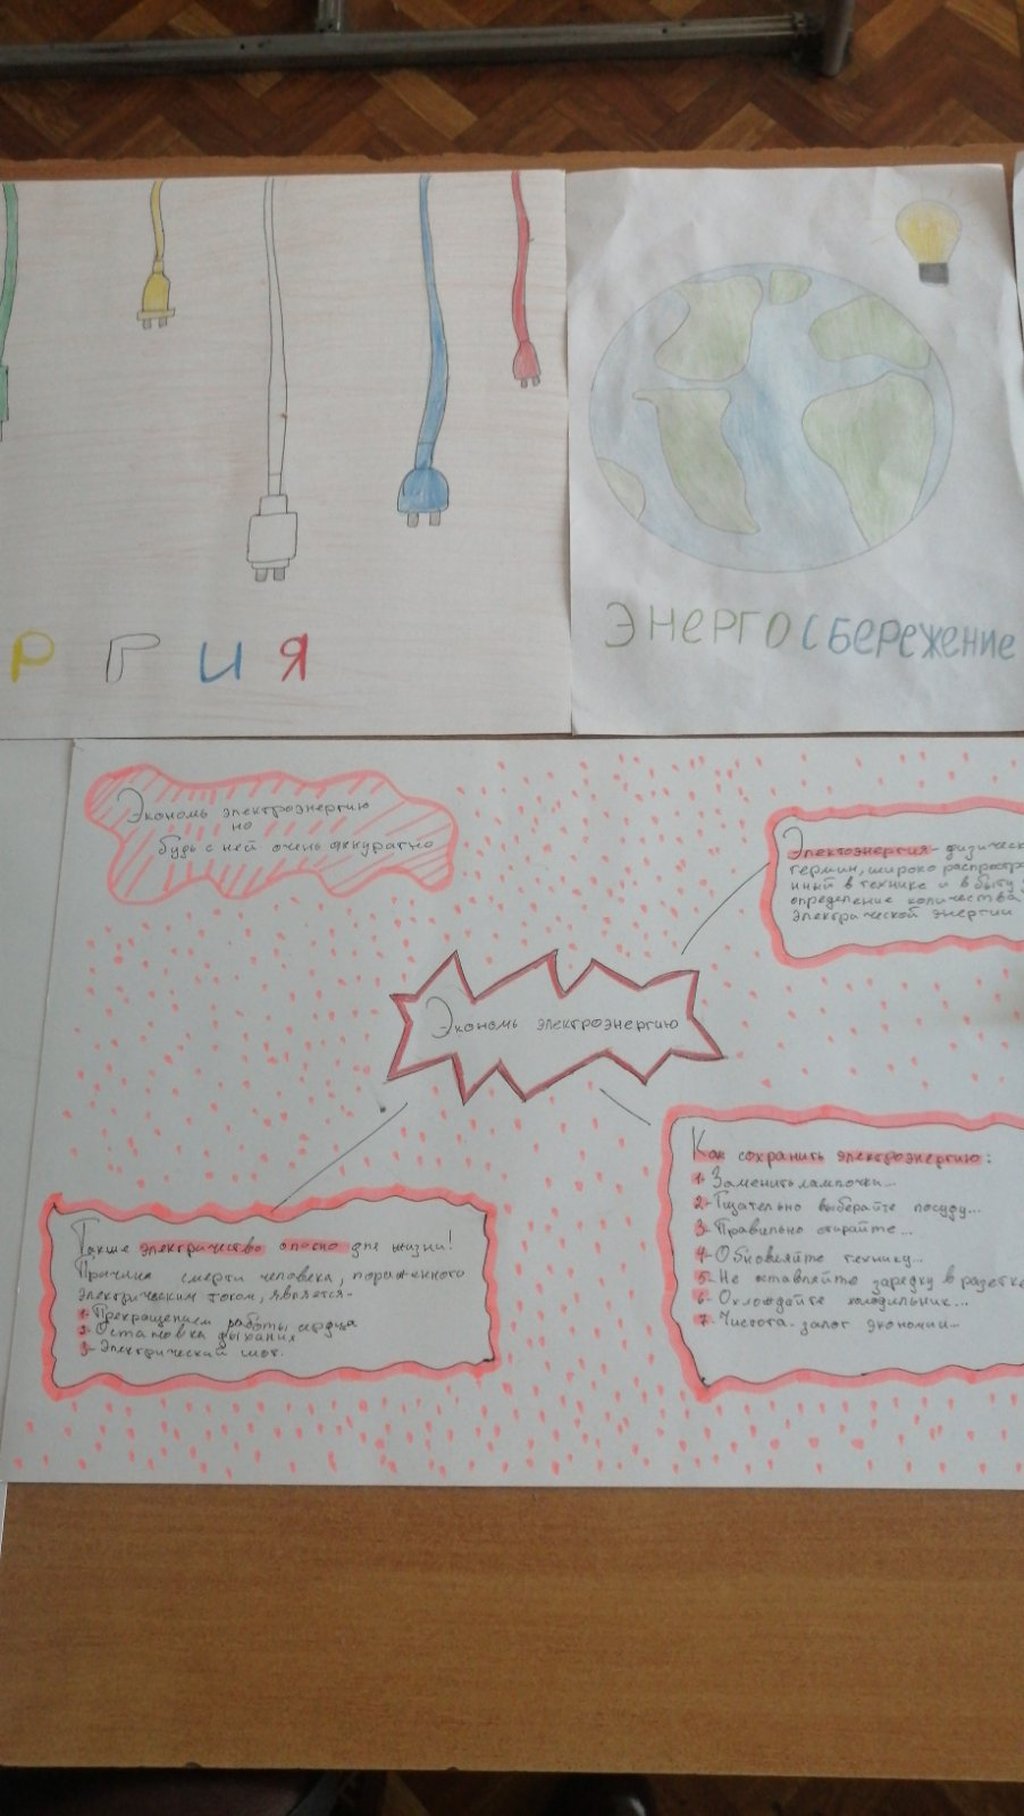 Р Г И Я
ЭНЕРГОСБЕРЕЖЕНИЕ
Экономь электроэнергию
но
будь с ней очень аккуратно
Электоэнергия-физическ
термин, широко распростра
нный в технике и в быту
определение количества
электрической энергии
Экономь электроэнергию
Также электричество опасно для жизни!
Причина смерти человека, пораженного
электрическим током, является-
1-Прекращением работы сердца
2-Остановка дыхания
3-Электрический шок.
Как сохранить электроэнергию:
1-Заменить лампочки...
2-Тщательно выберайте посуду...
3-Правильно стирайте...
4-Обновляйте технику...
5-Не оставляйте зарядку в разетке
6-Охлождайте холодильник...
7-Чистота-залог экономии...